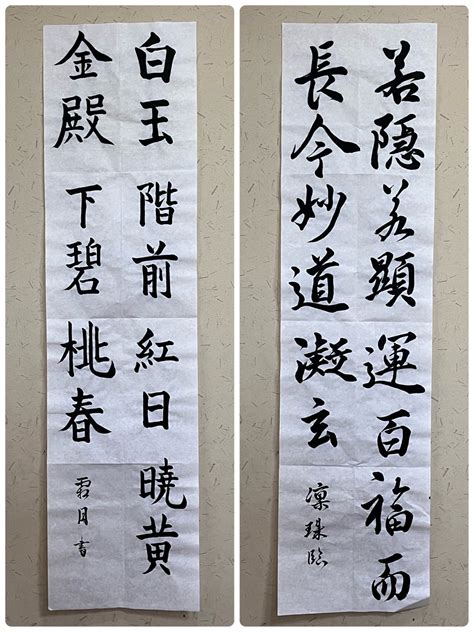 白玉階前紅日曉黄
金殿下碧桃春
霜月書
若隱若顯運百福而
長今妙道凝玄
凜珠臨